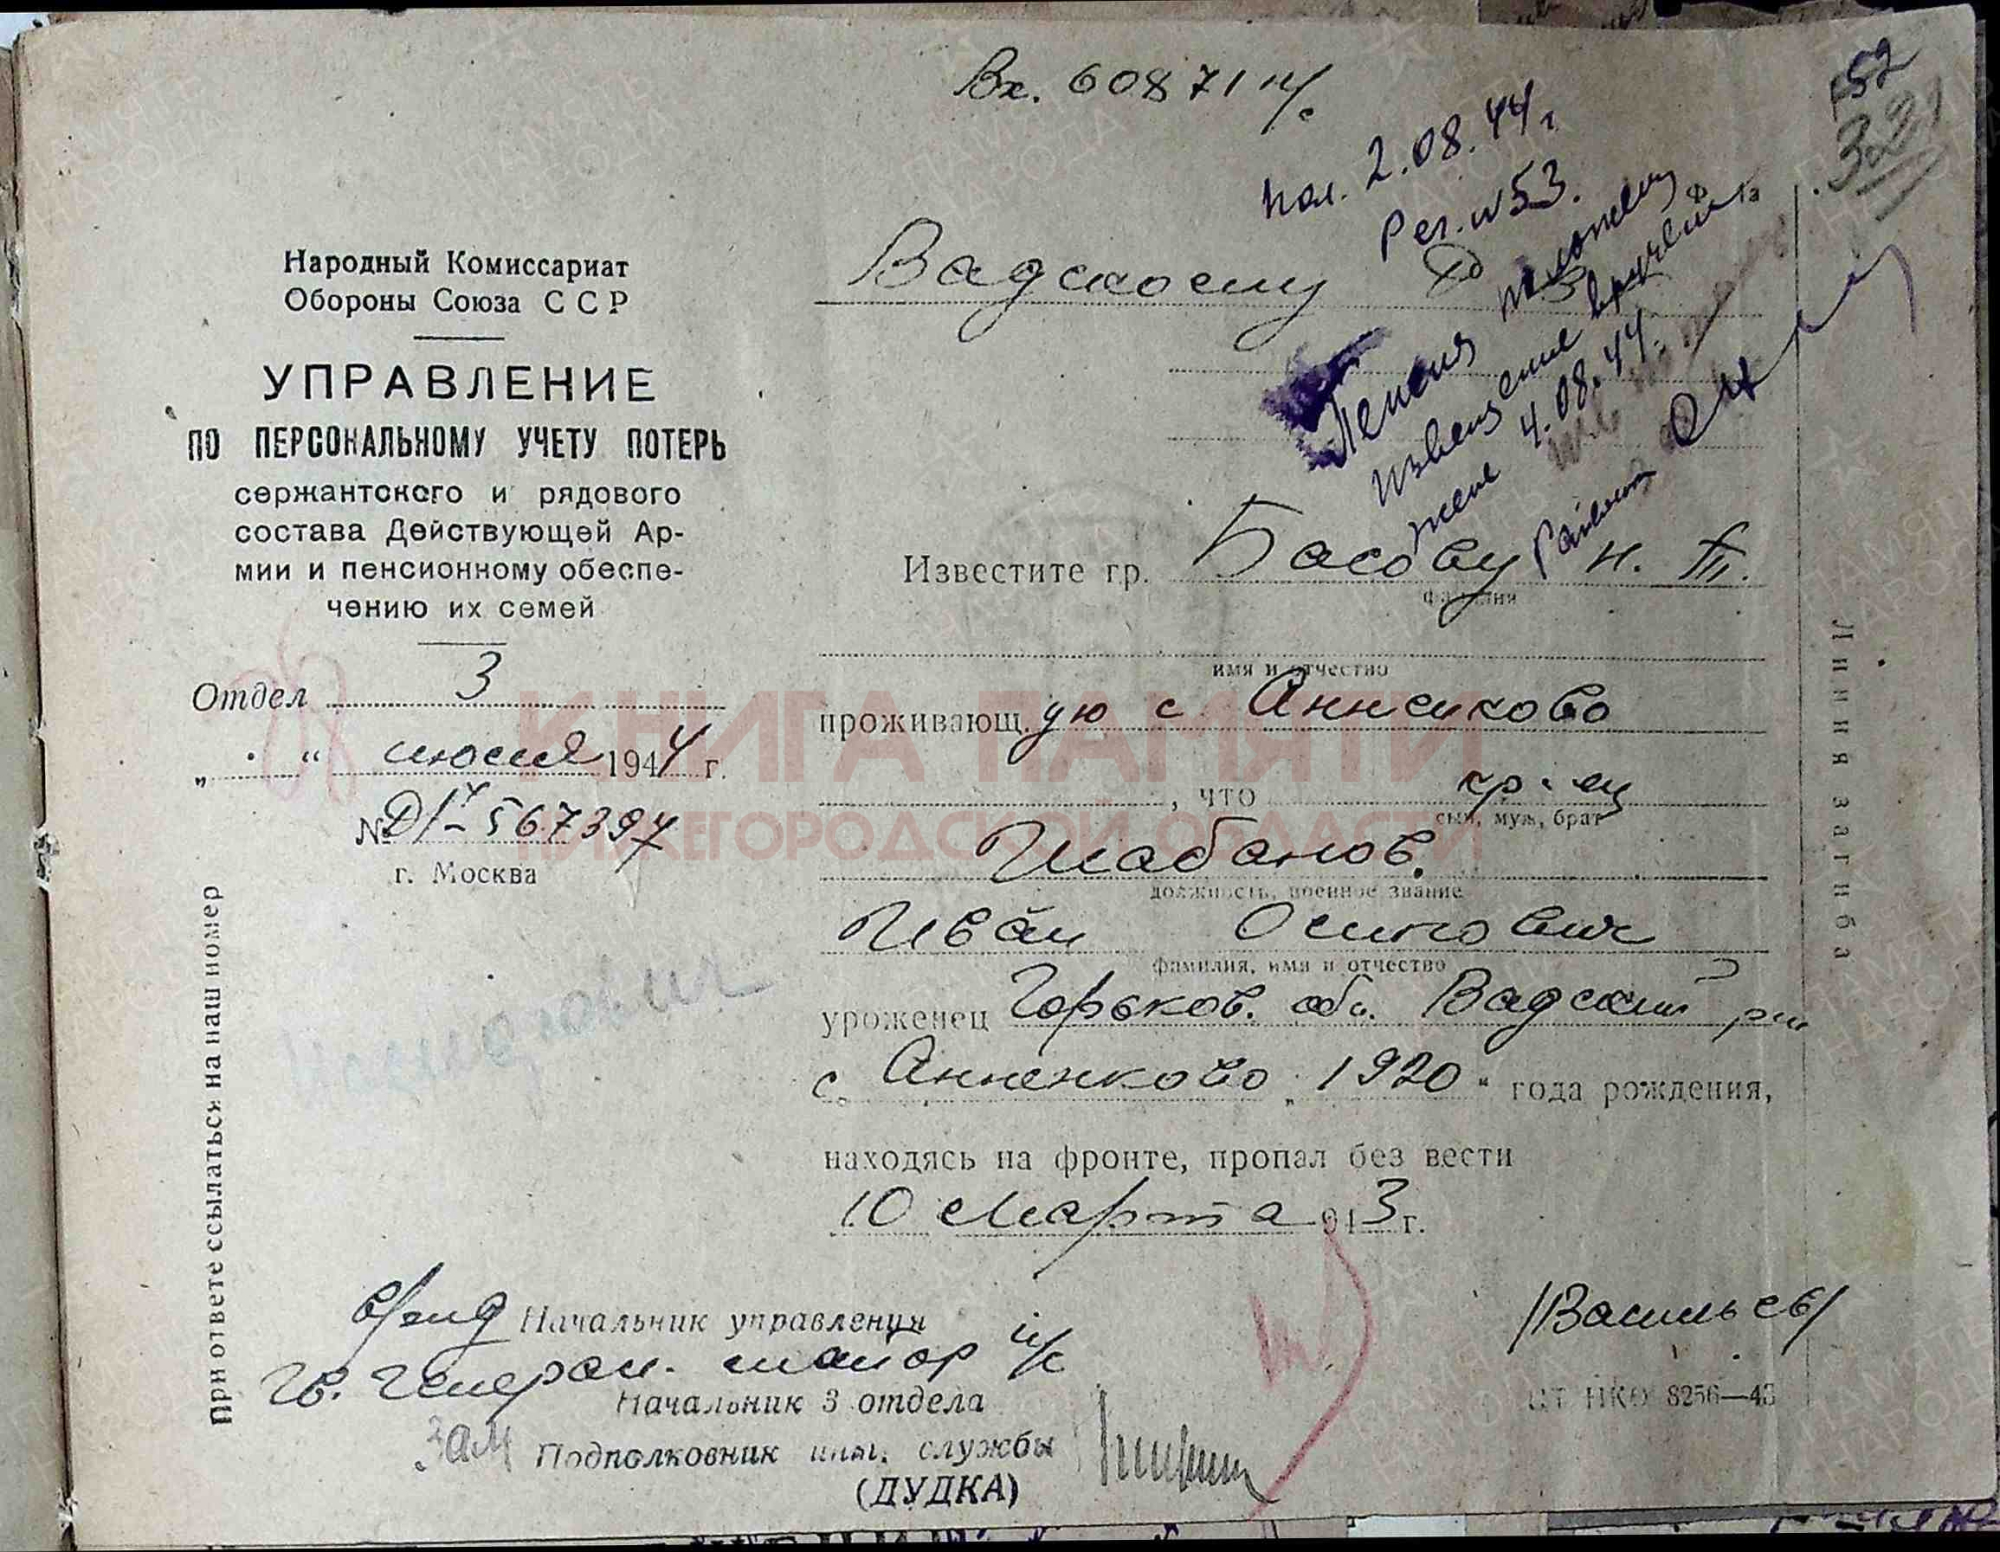 Вх. 60871 н/с
52
321
пол. 2.08.44 г.
Рег. N 53.
Ф 1з
Народный Комиссариат
Обороны Союза ССР
УПРАВЛЕНИЕ
ПО ПЕРСОНАЛЬНОМУ УЧЕТУ ПОТЕРЬ
сержантского и рядового
состава Действующей Ар-
мии и пенсионному обеспе-
чению их семей
Отдел 3
„ “ июля 1944 г.
№ 567397
г. Москва
При ответе ссылаться на наш номер
Вадскому
Пенсия
извещение вручено
жене 4.08.44.
Известите гр. Басову Н. П.
фамилия
имя и отчество
проживающ. ую с Анненково
, что кр-ец
сын, муж, брат
Шабанов.
должность, военное звание
Иван Осипович
фамилия, имя и отчество
уроженец Горьков. обл. Вадский р-н
с. Анненково „ 1920 “ года рождения,
находясь на фронте, пропал без вести
10 Марта 943 г.
Начальник управления
Гв. Генерал. майор и/с
/Васильев/
Начальник 3 отдела
Зам Подполковник инт. службы
(ДУДКА)
ЦТ НКО 8256—43
Линия загиба
КНИГА ПАМЯТИ
НИЖЕГОРОДСКОЙ ОБЛАСТИ
ПАМЯТЬ НАРОДА